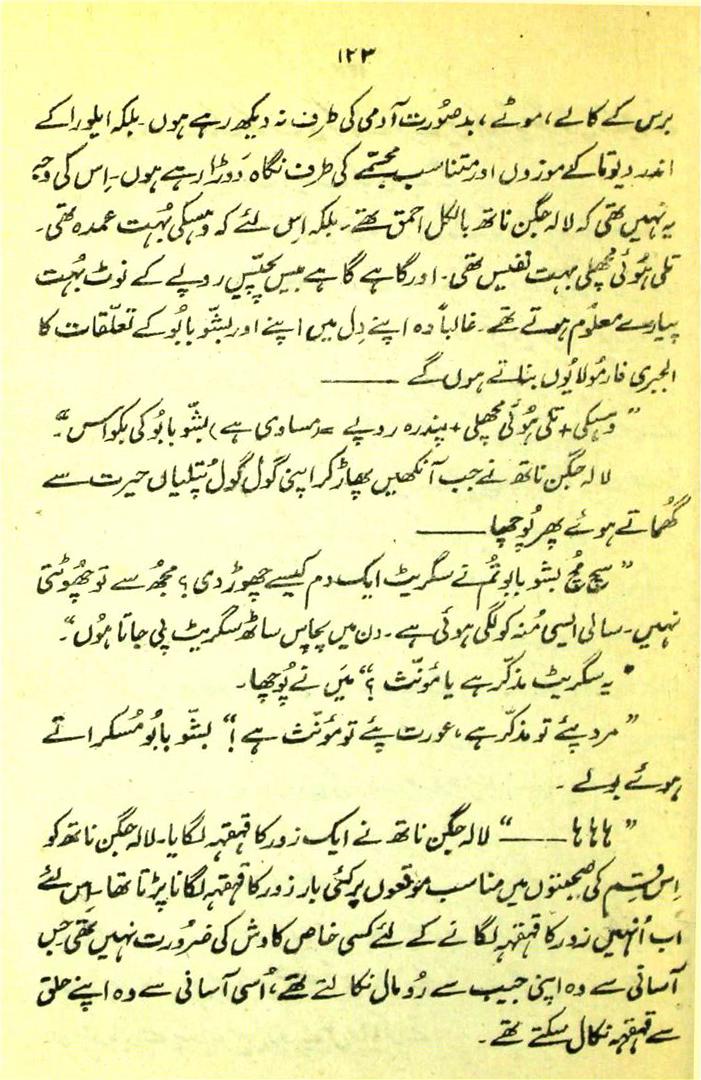 ۱۲۳
برس کے کالے، موٹے، بدصُورت آدمی کی طرف نہ دیکھ رہے ہوں۔ بلکہ ایلورا کے
اندر دیوتا کے موزوں اور متناسب مجسّمے کی طرف نگاہ دَوڑا رہے ہوں۔ اِس کی وجہ
یہ نہیں تھی کہ لالہ جگن ناتھ بالکل احمق تھے۔ بلکہ اِس لئے کہ وہسکی بُہت عمدہ تھی۔
تلی ہُوئی مچھلی بہت نفیس تھی۔ اور گاہے گاہے بیس پچیّس روپے کے نوٹ بُہت
پیارے معلُوم ہوتے تھے۔ غالباً وہ اپنے دِل میں اپنے اور بشّو بابُو کے تعلّقات کا
الجبری فارمُولا یُوں بناتے ہوں گے ———
”وہسکی + تلی ہُوئی مچھلی + پندرہ روپے = (مساوی ہے) بشّو بابُو کی بکواس“۔
لالہ جگن ناتھ نے جب آنکھیں پھاڑ کر اپنی گول گول پُتلیاں حیرت سے
گُھماتے ہوئے پھر پُوچھا ———
”سچ مُچ بشّو بابو تُم نے سگریٹ ایک دم کیسے چھوڑ دی؟ مجھ سے تو چُھوٹتی
نہیں۔ سالی ایسی مُنہ کو لگی ہوئی ہے۔ دن میں پچاس ساٹھ سگریٹ پی جاتا ہُوں“۔
”یہ سگریٹ مذکّر ہے یا مؤنّث؟“ مَیں نے پُوچھا۔
”مرد پئے تو مذکّر ہے، عورت پئے تو مؤنّث ہے!“ بشّو بابُو مُسکراتے
ہوئے بولے۔
”ہاہاہا ———“ لالہ جگن ناتھ نے ایک زور کا قہقہہ لگایا۔ لالہ جگن ناتھ کو
اِس قسِم کی صحبتوں میں مناسب موقعوں پر کئی بار زور کا قہقہہ لگانا پڑتا تھا۔ اِس لئے
اب اُنہیں زور کا قہقہہ لگانے کے لئے کسی خاص کاوش کی ضرُورت نہیں تھی۔ جس
آسانی سے وہ اپنی جیب سے رُومال نکالتے تھے، اُسی آسانی سے وہ اپنے حلق
سے قہقہہ نکال سکتے تھے۔